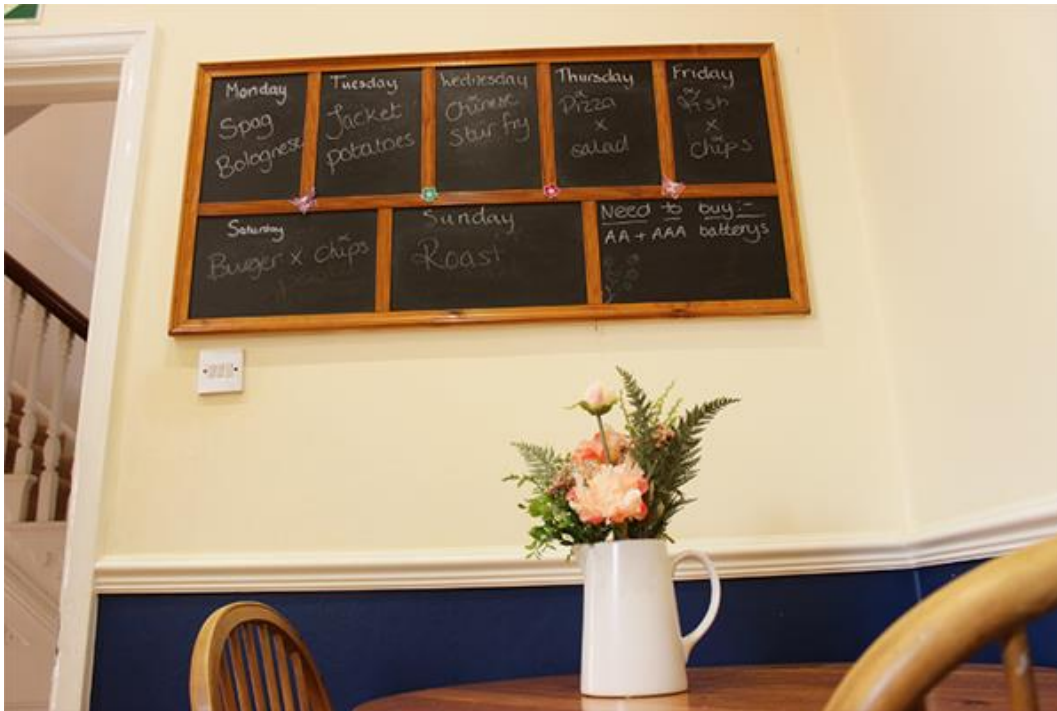 Monday
Spag
Bolognese
Tuesday
Jacket
potatoes
Wednesday
Chinese
Stir fry
Thursday
Pizza
x
salad
Friday
Fish
x
chips
Saturday
Burger x chips
Sunday
Roast
Need to buy:-
AA + AAA batterys